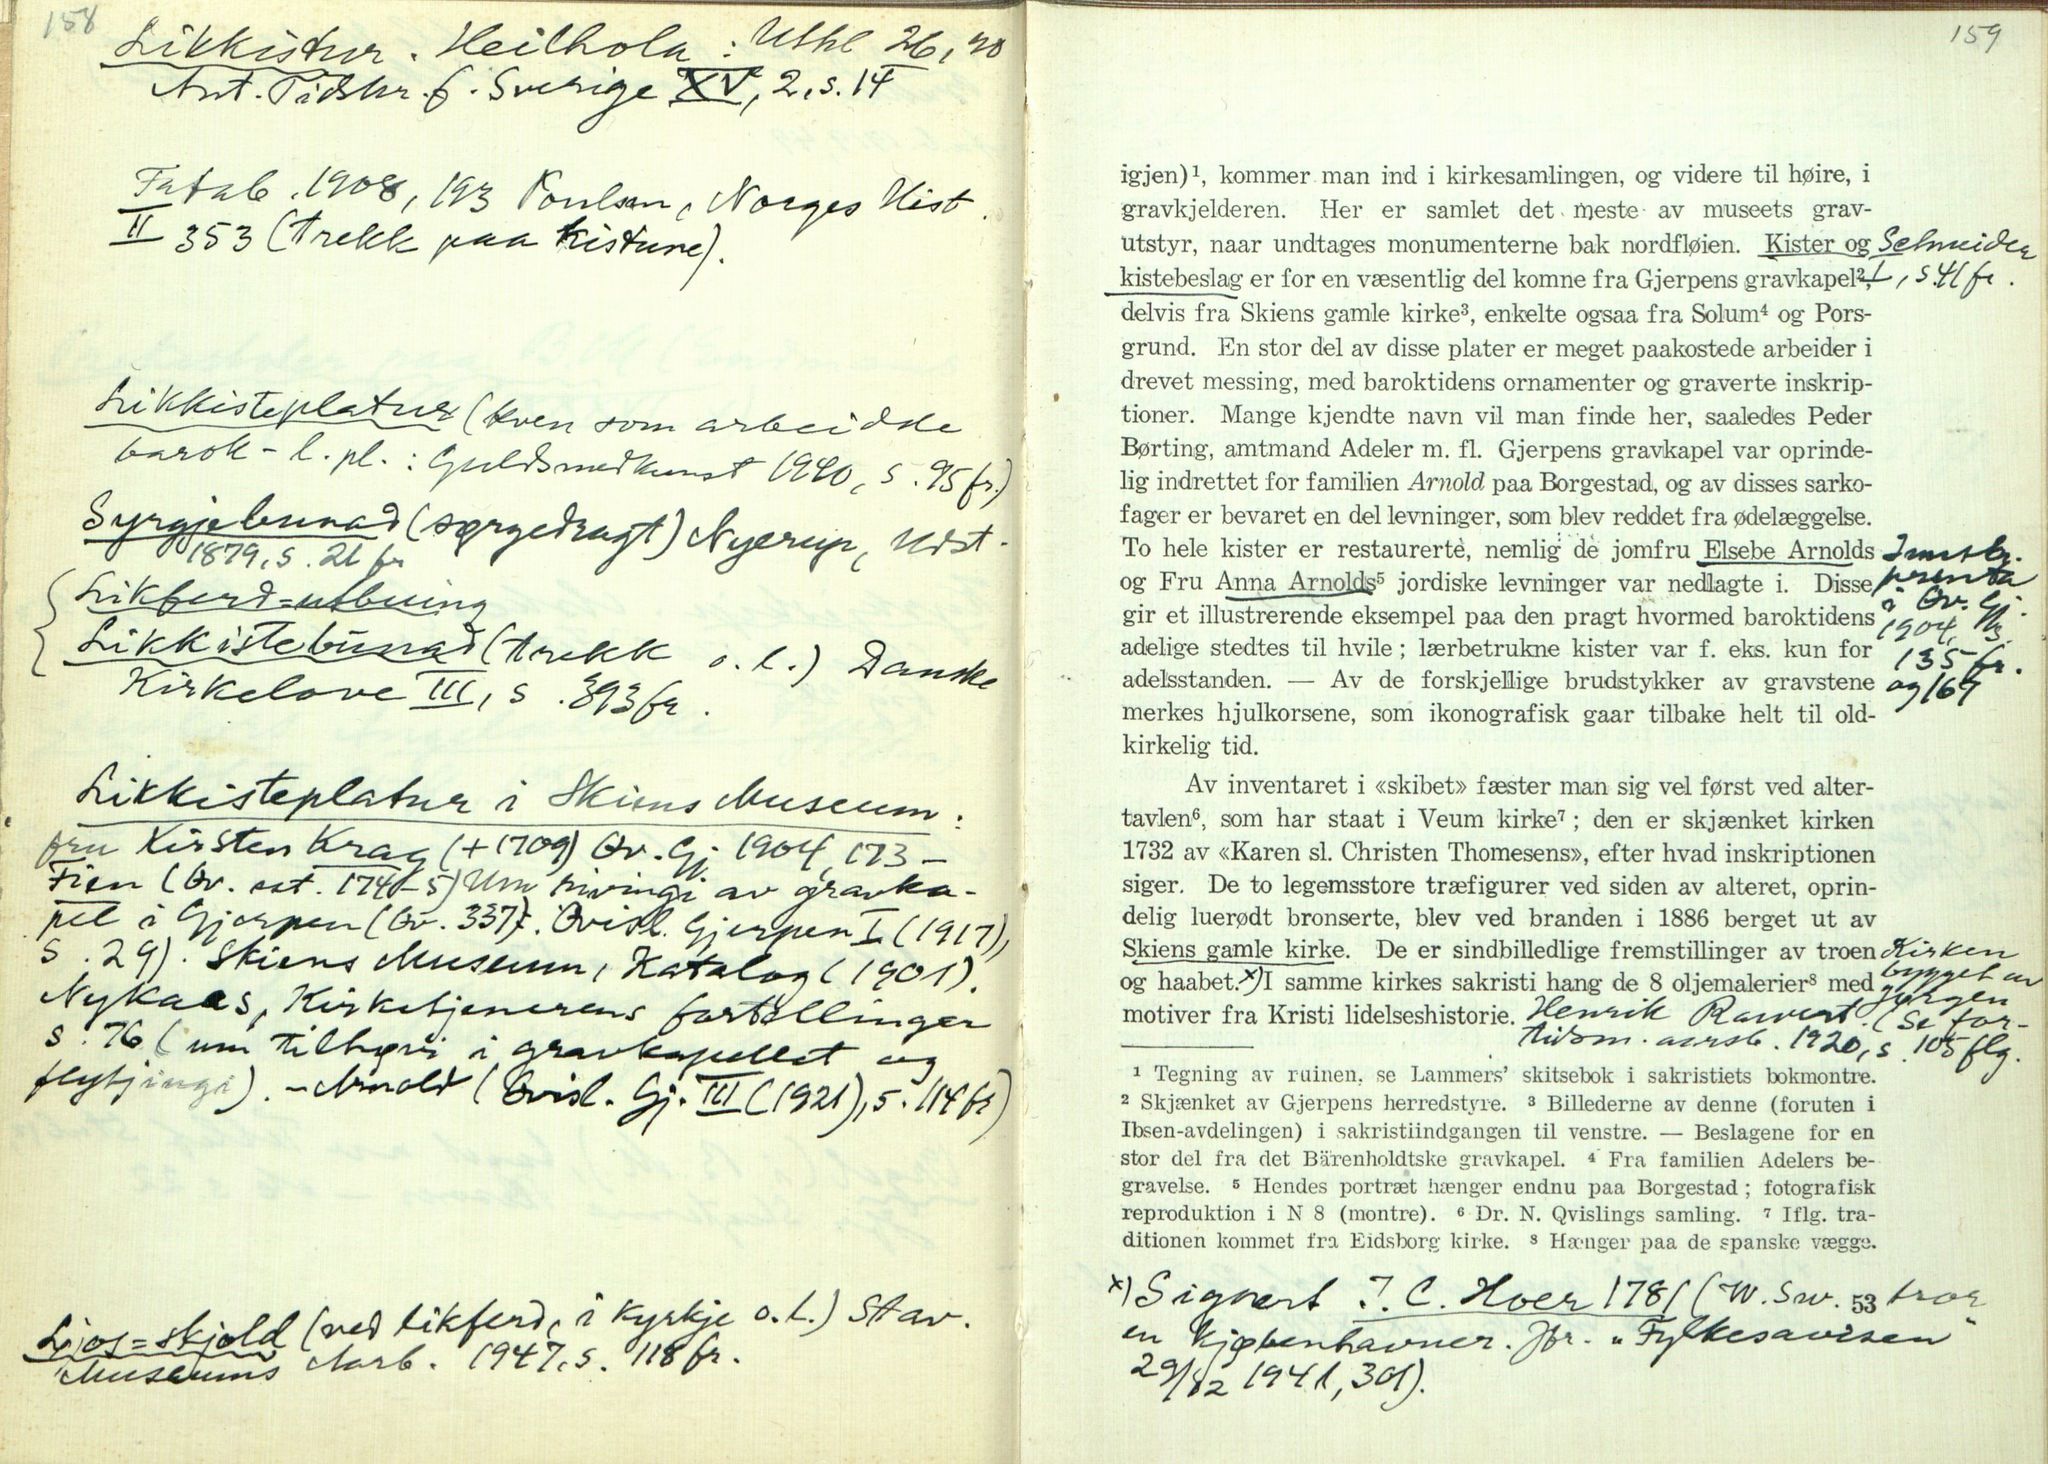 158
Likkistur. Heilhola: Ushl 26, 40
Ant. Tidskr. f. Sverige XV, 2, s. 14
Fatab. 1908, 193 Poulsen, Norges Hist.
II 353 (trekk paa kistune).
Likkisteplatur (kven som arbeidde
barok-l. pl.: Guldsmedkunst 1940, s. 95 fr.)
Syrgjebunad (sørgedragt) Nyerup, Udst.
1879, s. 21 fr
Likferd-utbuing
Likkistebunad (trekk o. l.) Danske
Kirkelove III, s. 393 fr.
Likkisteplatur i Skiens Museum:
fru Kirsten Krag (+1709) Qv. Gj. 1904, 173-
Fien (Qv. est. 174-5) Um rivingi av gravka-
pel i Gjerpen (Qv. 337). Qvisl. Gjerpen I (1917),
s. 29). Skiens Museum, Katalog (1901).
Nykaas, Kirketjenerens fortellinger
s. 76 (um tilhøvi i gravkapellet og
flytjingi). - Arnold (Qvisl. Gj. III (1921), s. 114 fr)
Ljos=skjold (ved likferd, i kyrkje o. l.) Stav.
Museums Aarb. 1947, s. 118 fr.
159
igjen)¹, kommer man ind i kirkesamlingen, og videre til høire, i
gravkjelderen. Her er samlet det meste av museets grav-
utstyr, naar undtages monumenterne bak nordfløien. Kister og Schneider
kistebeslag er for en væsentlig del komne fra Gjerpens gravkapel², I, s. 41 fr.
delvis fra Skiens gamle kirke³, enkelte ogsaa fra Solum⁴ og Pors-
grund. En stor del av disse plater er meget paakostede arbeider i
drevet messing, med baroktidens ornamenter og graverte inskrip-
tioner. Mange kjendte navn vil man finde her, saaledes Peder
Børting, amtmand Adeler m. fl. Gjerpens gravkapel var oprinde-
lig indrettet for familien Arnold paa Borgestad, og av disses sarko-
fager er bevaret en del levninger, som blev reddet fra ødelæggelse.
To hele kister er restaurerte, nemlig de jomfru Elsebe Arnolds
og Fru Anna Arnolds⁵ jordiske levninger var nedlagte i. Disse
gir et illustrerende eksempel paa den pragt hvormed baroktidens
adelige stedtes til hvile; lærbetrukne kister var f. eks. kun for
adelsstanden. — Av de forskjellige brudstykker av gravstene
merkes hjulkorsene, som ikonografisk gaar tilbake helt til old-
kirkelig tid.
Innskr.
prenta
i Qv. Gj.
1904,
135 fr.
og 169
Av inventaret i «skibet» fæster man sig vel først ved alter-
tavlen⁶, som har staat i Veum kirke⁷; den er skjænket kirken
1732 av «Karen sl. Christen Thomesens», efter hvad inskriptionen
siger. De to legemsstore træfigurer ved siden av alteret, oprin-
delig luerødt bronserte, blev ved branden i 1886 berget ut av
Skiens gamle kirke. De er sindbilledlige fremstillinger av troen
og haabet. x) I samme kirkes sakristi hang de 8 oljemalerier⁸ med
motiver fra Kristi lidelseshistorie.
Kirken
bygget av
Jørgen
Henrik Rawert. (Se for-
tidsm. aarsb. 1920, s. 105 flg.
¹ Tegning av ruinen, se Lammers’ skitsebok i sakristiets bokmontre.
² Skjænket av Gjerpens herredstyre. ³ Billederne av denne (foruten i
Ibsen-avdelingen) i sakristiindgangen til venstre. — Beslagene for en
stor del fra det Bärenholdtske gravkapel. ⁴ Fra familien Adelers be-
gravelse. ⁵ Hendes portræt hænger endnu paa Borgestad; fotografisk
reproduktion i N 8 (montre). ⁶ Dr. N. Qvislings samling. ⁷ Iflg. tra-
ditionen kommet fra Eidsborg kirke. ⁸ Hænger paa de spanske vægge.
x) Signert J. C. Hoer 1781 (W. Sw. 53 tror
en kjøbenhavner. Jfr. „Fylkesavisen"
29/12 1941, 301).